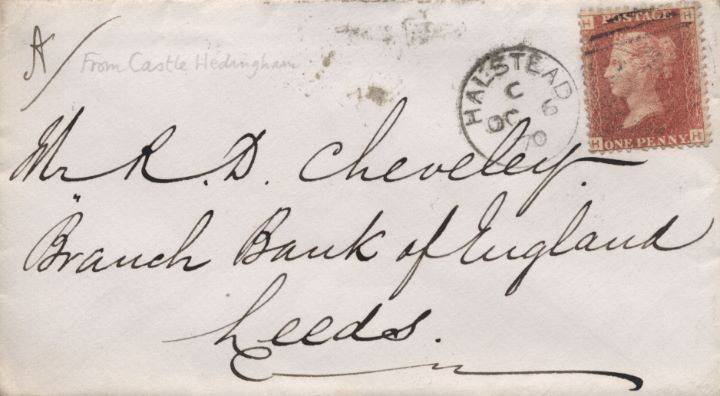 A/
From Castle Hedingham
H POSTAGE H
HALSTEAD
C
OC 6
70
H ONE PENNY H
Mr R. D. Cheveley.
Branch Bank of England
Leeds.